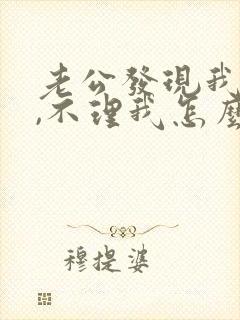 老公發現我
,不理我怎麼
穆提婆